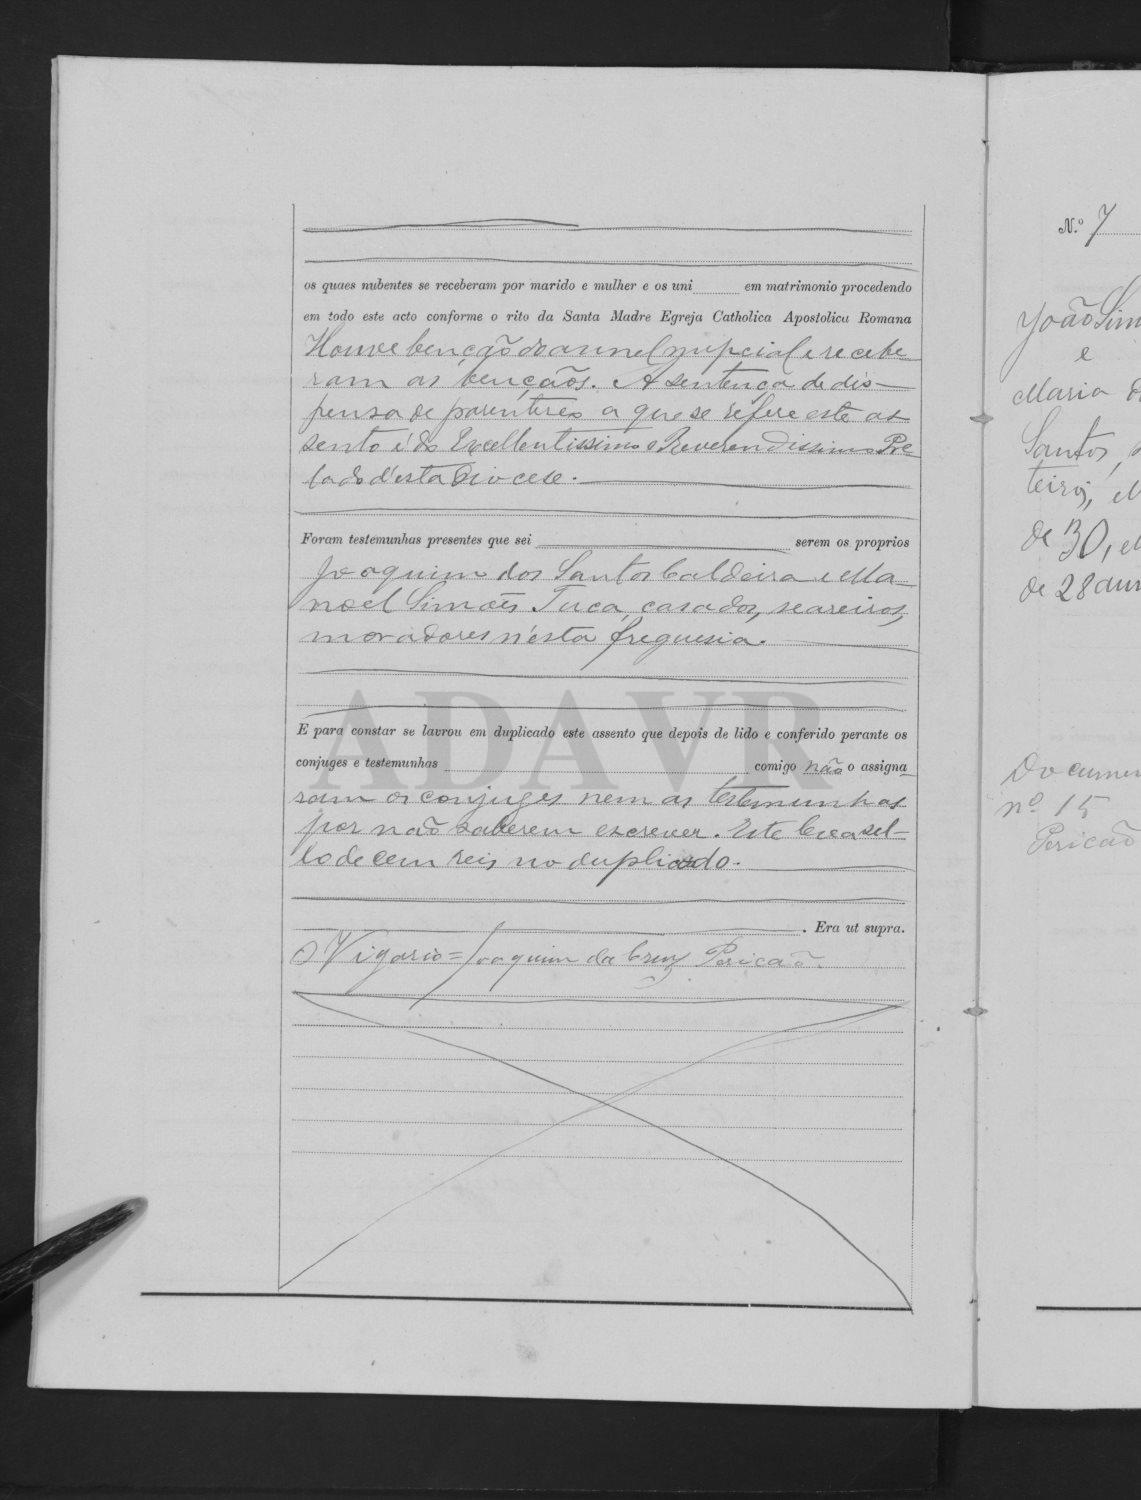 os quaes nubentes se receberam por marido e mulher e os uni em matrimonio procedendo
em todo este acto conforme o rito da Santa Madre Egreja Catholica Apostolica Romana
Houve bencção do annel nupcial e recebe-
ram as bençãos. A sentença de dis-
pensa de parentesco a que se refere este as-
sento é do Excellentissimo e Reverendissimo Pre-
lado d'esta Diocese.
Foram testemunhas presentes que sei serem os proprios
Joaquim dos Santos Caldeira e Ma-
noel Simões Tuca, casados, seareiros,
moradores n'esta freguesia.
ADAVR
E para constar se lavrou em duplicado este assento que depois de lido e conferido perante os
conjuges e testemunhas comigo não o assigna-
ram os conjuges nem as testemunhas
por não saberem escrever. Este leva sel-
lo de cem reis no duplicado.
. Era ut supra.
O Vigario = Joaquim da Cruz Pericão.
N.º 7
João Sim
e
Maria d
Santos,
teiros, el
de 30, el
de 28 ann
Documen
nº 15
Pericão